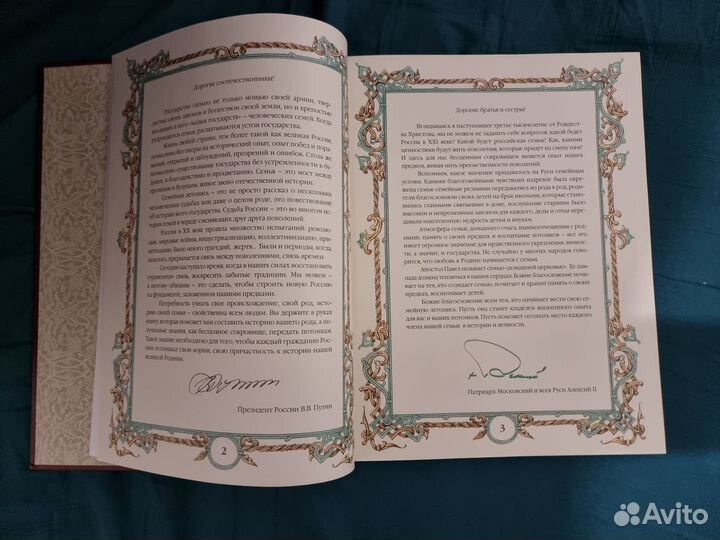 Дорогие соотечественники!
Государство сильно не только мощью своей армии, твер-
достью своих законов и богатством своей земли, но и крепостью
входящих в него «малых государств» – человеческих семей. Когда
разрушается семья, расшатываются устои государства.
Жизнь любой страны, тем более такой как великая Россия,
немыслима без опоры на исторический опыт, опыт побед и пора-
жений, открытий и заблуждений, прозрений и ошибок. Столь же
немыслимо существование государства без устремленности в бу-
дущее, к благоденствию и процветанию. Семья – это мост между
прошлым и будущим, живое звено отечественной истории.
Семейная летопись – это не просто рассказ о нескольких
человеческих судьбах или даже о целом роде, это повествование
об истории всего государства. Судьба России – это во многом ис-
тория семей в череде сменяющих друг друга поколений.
Россия в XX веке прошла множество испытаний: револю-
ции, мировые войны, индустриализацию, коллективизацию, при-
ватизацию. Было много трагедий, жертв... Были и периоды, когда,
казалось, прервется связь между поколениями, связь времен.
Сегодня наступило время, когда в наших силах восстановить
утраченную связь, воскресить забытые традиции. Мы можем –
а потому обязаны – это сделать, чтобы строить новую Россию
на фундаменте, заложенном нашими предками.
Потребность узнать свое происхождение, свой род, исто-
рию своей семьи – свойственна всем людям. Вы держите в руках
книгу, которая поможет вам составить историю вашего рода, а по-
лученные знания, как бесценное сокровище, передать потомкам.
Такое знание необходимо для того, чтобы каждый гражданин Рос-
сии осознавал свои корни, свою причастность к истории нашей
великой Родины.
Президент России В.В. Путин
2
Дорогие братья и сестры!
Вглядываясь в наступившее третье тысячелетие от Рождест-
ва Христова, мы не можем не задавать себе вопросов: какой будет
Россия в XXI веке? Какой будет российская семья? Как, какими
ценностями будут жить поколения, которые придут на смену нам?
И здесь для нас бесценным сокровищем является опыт наших
предков, живая нить преемственности поколений.
Вспомним, какое значение придавалось на Руси семейным
устоям. Какими благоговейными чувствами издревле была окру-
жена семья: семейные реликвии передавались из рода в род, роди-
тели благословляли своих детей на брак иконами, которые стано-
вились главными святынями в доме, послушание старшим было
высоким и непременным законом для каждого, деды и отцы пере-
давали накопленную мудрость детям и внукам.
Атмосфера семьи, домашнего очага, взаимоотношения с род-
ными, память о своих предках и воспитание потомков – все это
имеет огромное значение для нравственного укрепления личнос-
ти, а значит, и государства. Не случайно у многих народов гово-
рится, что любовь к Родине начинается с семьи.
Апостол Павел называет семью «домашней церковью». Ее лам-
пада должна теплиться в наших сердцах. Божие благословение почи-
вает на тех, кто созидает семью, почитает и хранит память о своих
предках, воспитывает детей.
Божие благословение всем тем, кто начинает вести свою се-
мейную летопись. Пусть она станет кладезем жизненного опыта
для вас и ваших потомков. Пусть поможет осознать место каждого
члена вашей семьи в истории и вечности.
Патриарх Московский и всея Руси Алексий II
3
Avito